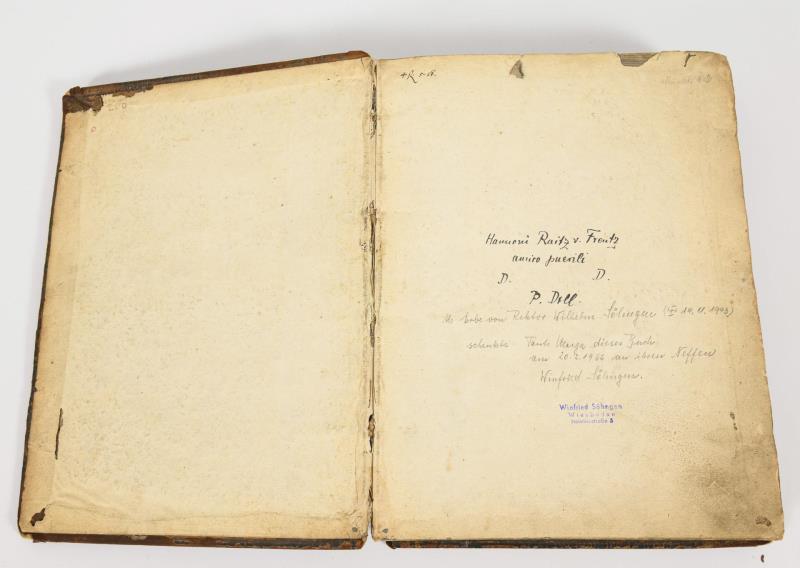 Hannoni Raitz v. Frentz
amico puerili
D. D.
P. Doll.
Als Erbe von Rektor Wilhelm Söhngen 14. 11. 1943)
schenkte Tante dieses Buch
am 20.2.1966 an ihren Neffen
Winfried Söhngen.
Winfried Söhngen
Wiesbaden
5